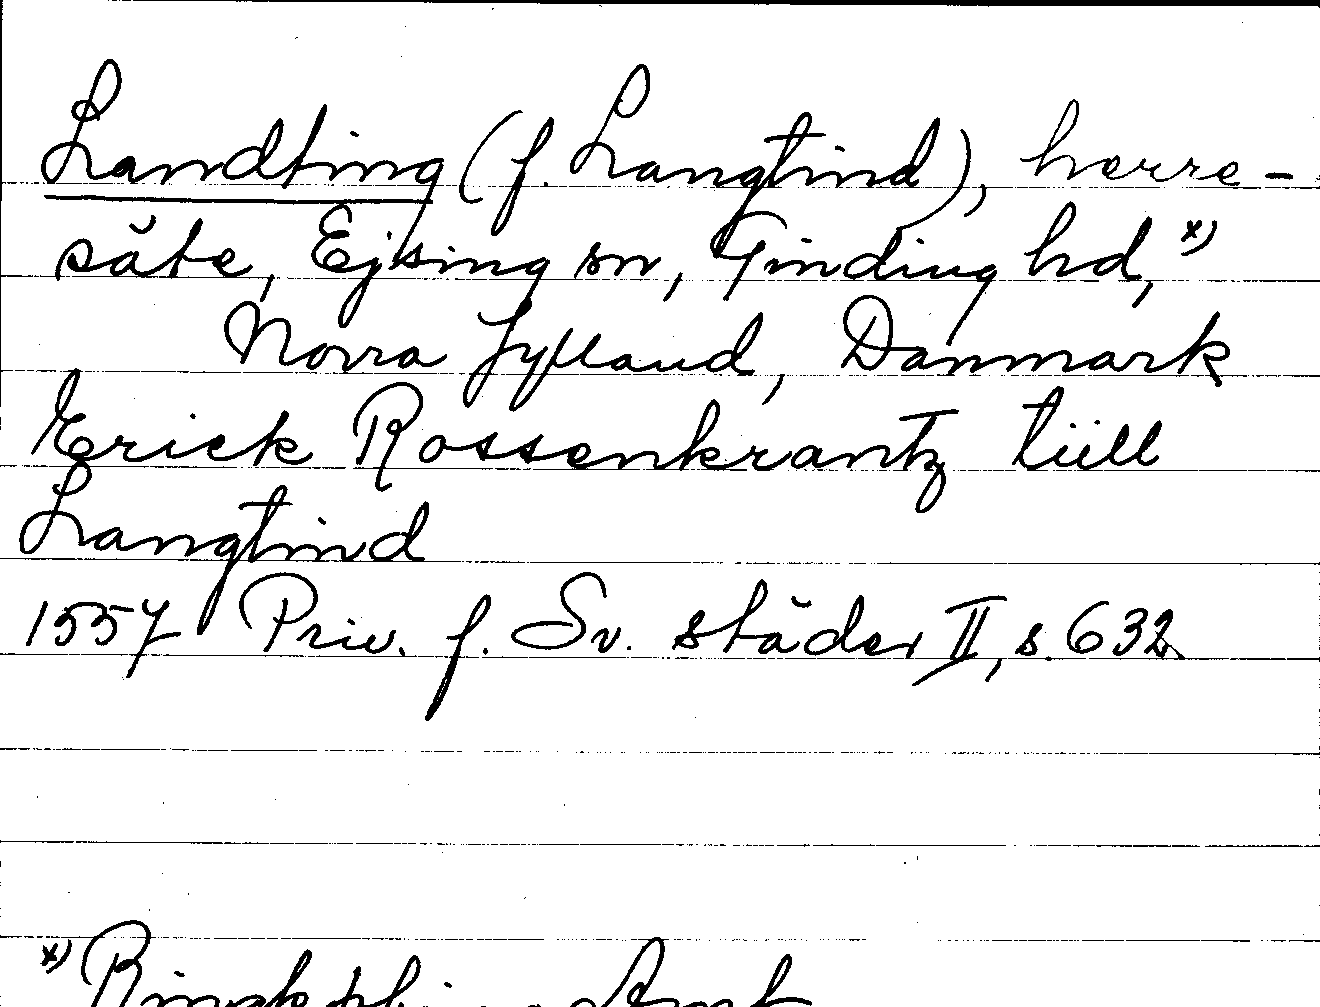 Landting (f. Langtind), herre-
säte, Ejsing sn, Ginding hd, x)
Norra Jylland, Danmark
Erick Rossenkrantz tiill
Langtind
1557 Priv. f. Sv. städer II, s. 632
x) Ringköbing Amt